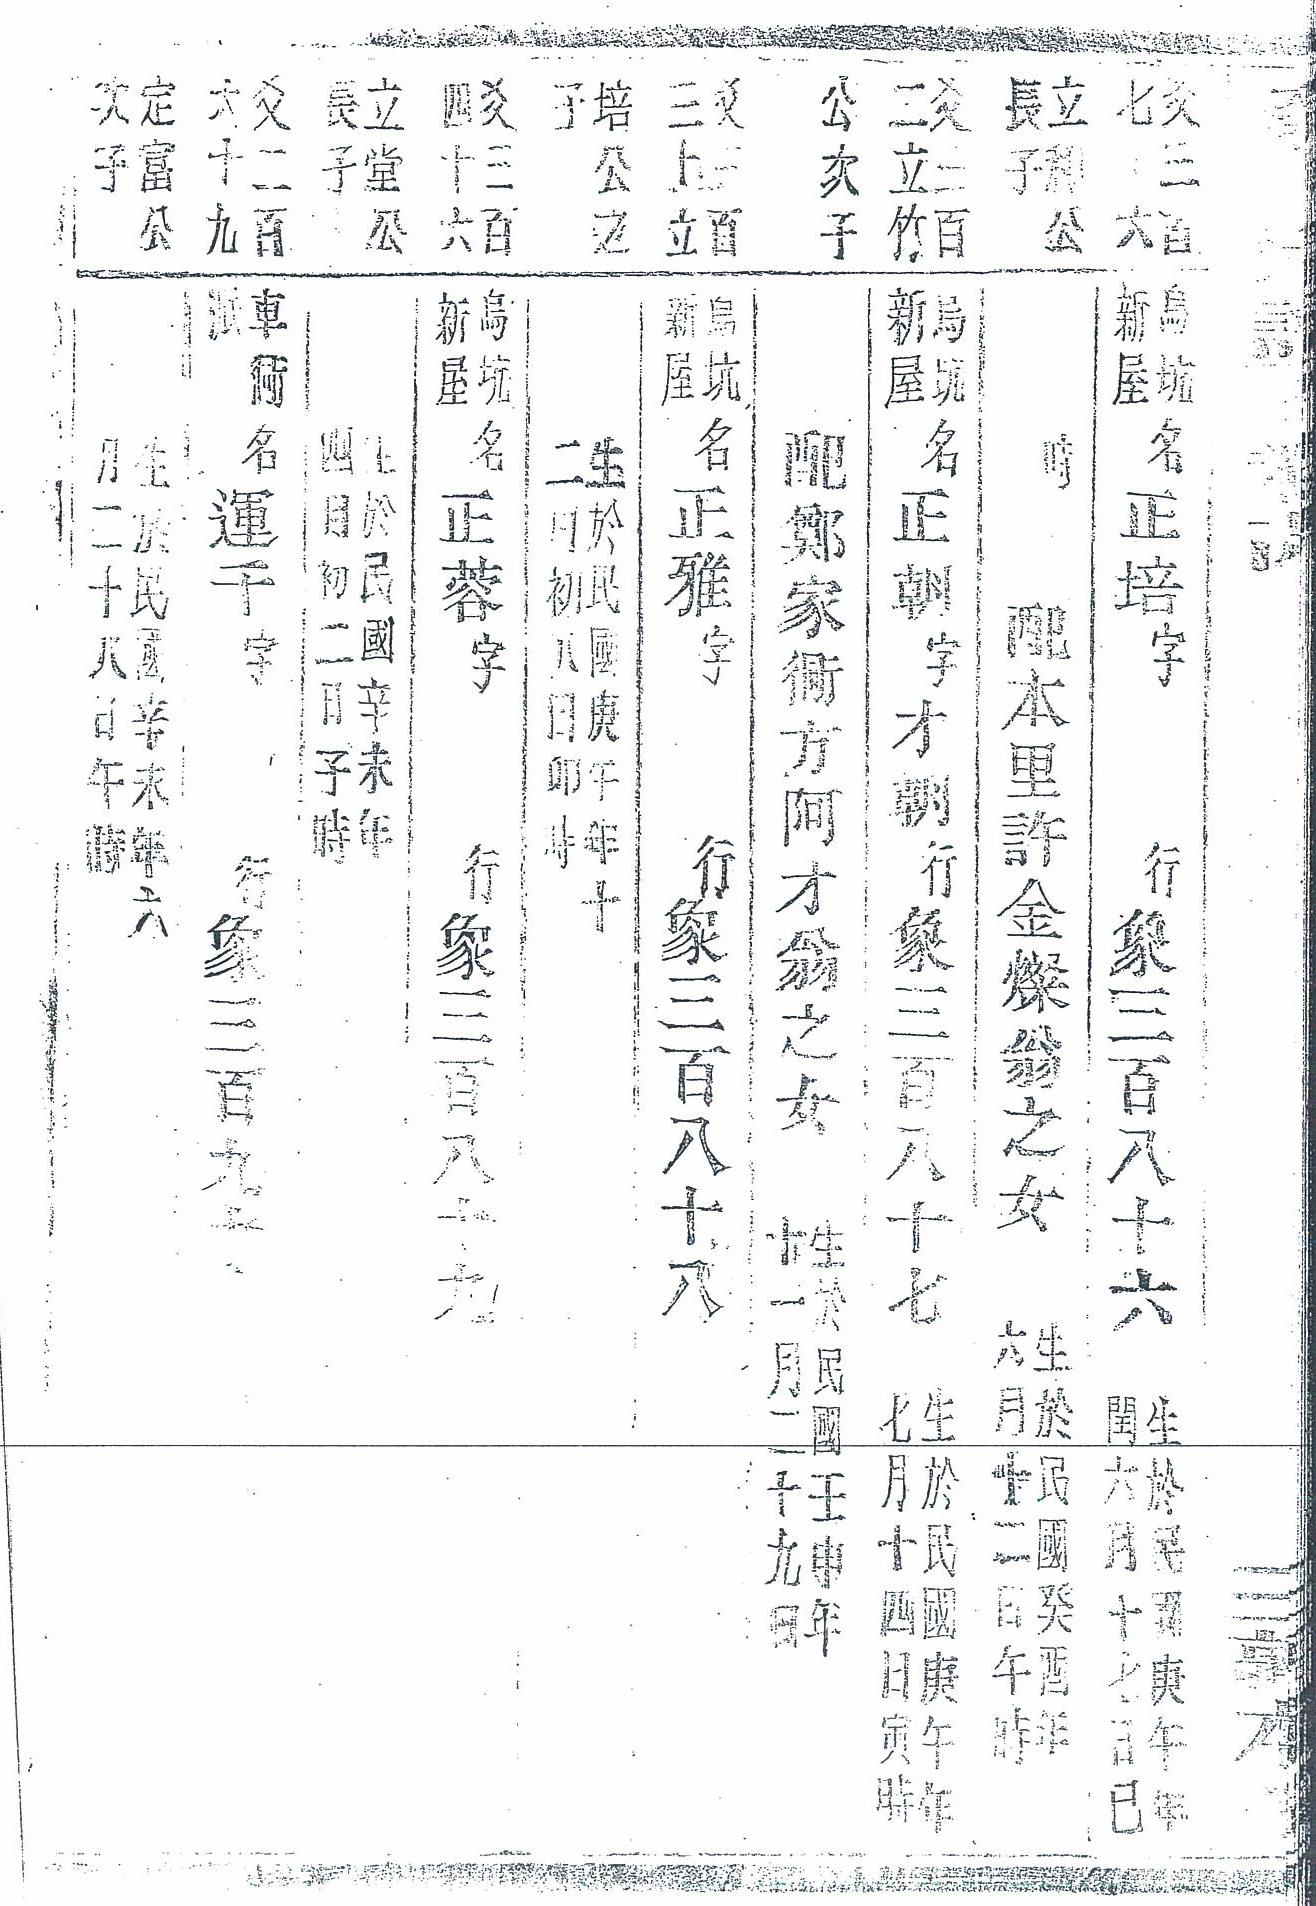 爻三百
七 六
立和公
長子
爻三百
二立竹
公次子
爻三百
三上立
培公之
子
爻三百
四十六
立堂公
長子
爻二百
六十九
定富公
次子
烏坑
新屋
名正培字 行象三百八十六
生於民國庚午年
閏六月十七日巳
時
配本里許金燦翁之女
生於民國癸酉年
六月十二日午時
烏坑
新屋
名正朝字才朝行象三百八十七
生於民國庚午年
七月十四日寅時
配鄭家衕方阿才翁之女
生於民國壬申年
十一月二十九日
烏坑
新屋
名正雅字 行象三百八十八
生於民國庚午年十
二月初八日卯時
烏坑
新屋
名正蓉字 行象三百八十九
生於民國辛未年
四月初二日子時
車衕
名運千字 行象三百九十
生於民國辛未年六
月二十八日午時